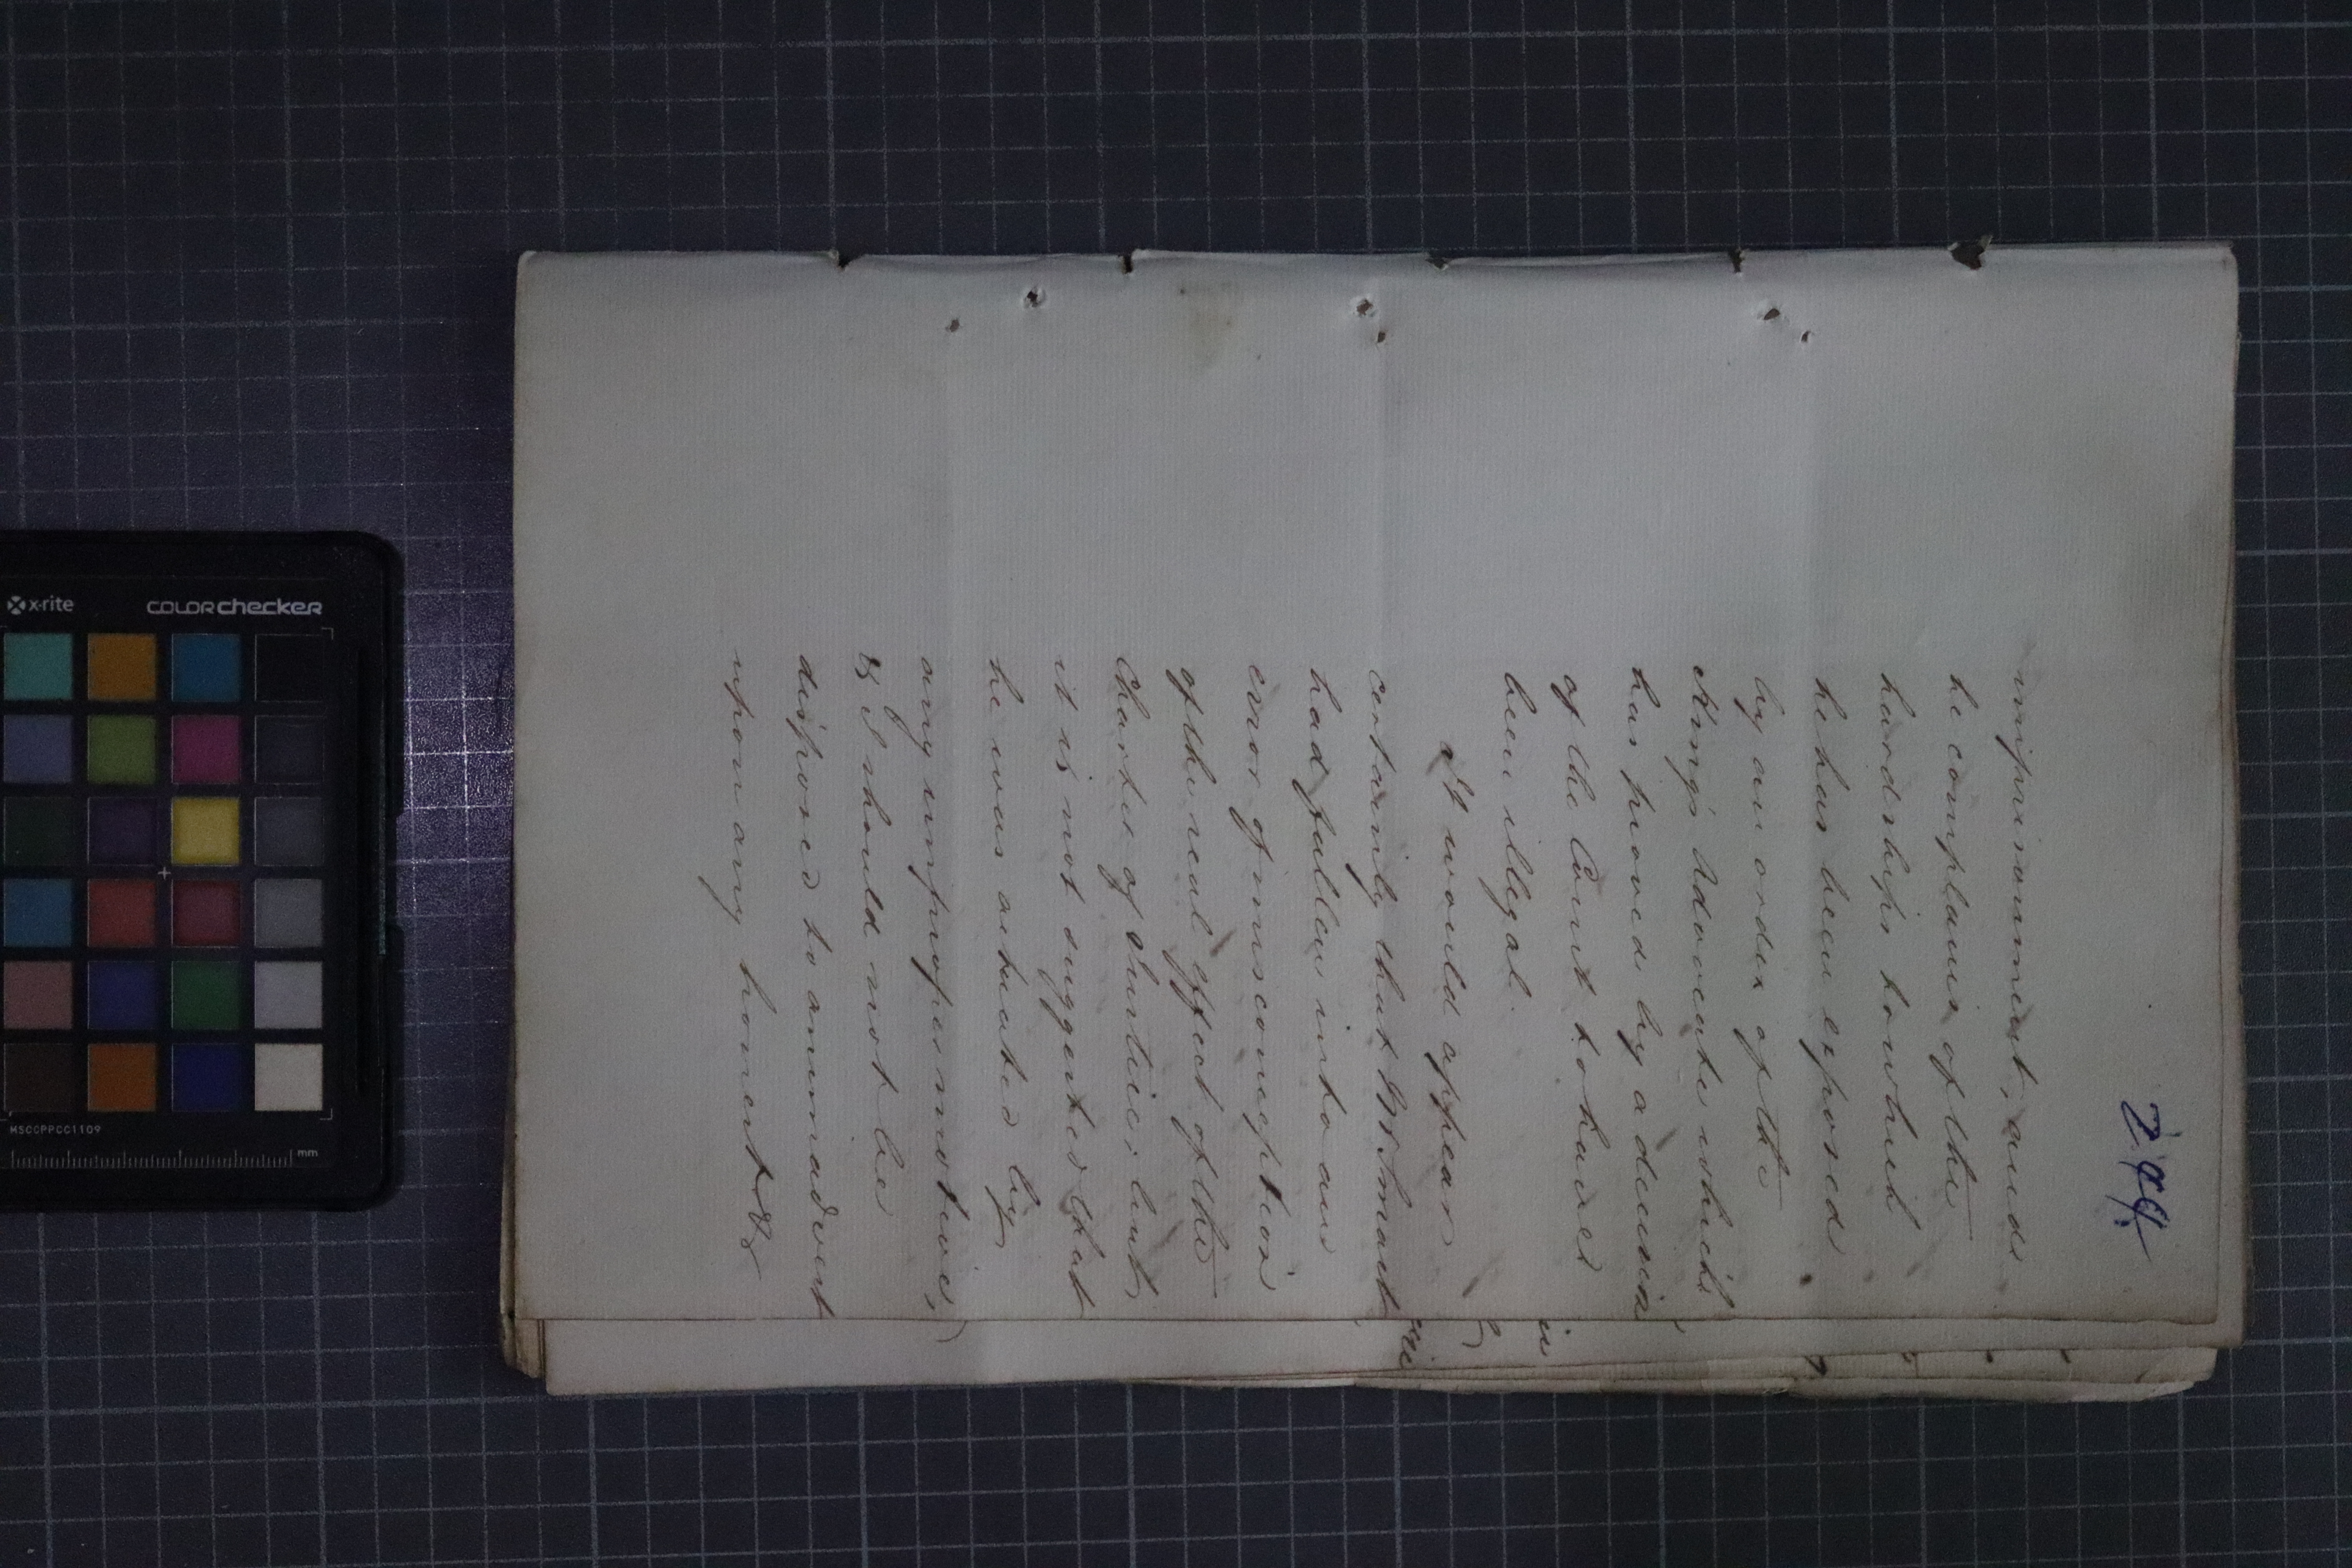 imprisonment, and
he complains of the
hardships to which
he has been exposed
by an order of the
King's Advocate which
has proved by a decision
of the Court to have
been illegal.
It would appear
certainly that Mr Smart
had fallen into an
error of misconception
of the real effect of the
Charter of Justice, but,
it is not suggested that
he was actuated by
any improper motives,
& I should not be
disposed to animadvert
upon any honest &
x-rite
colorchecker
MSCCPPCC1109
mm